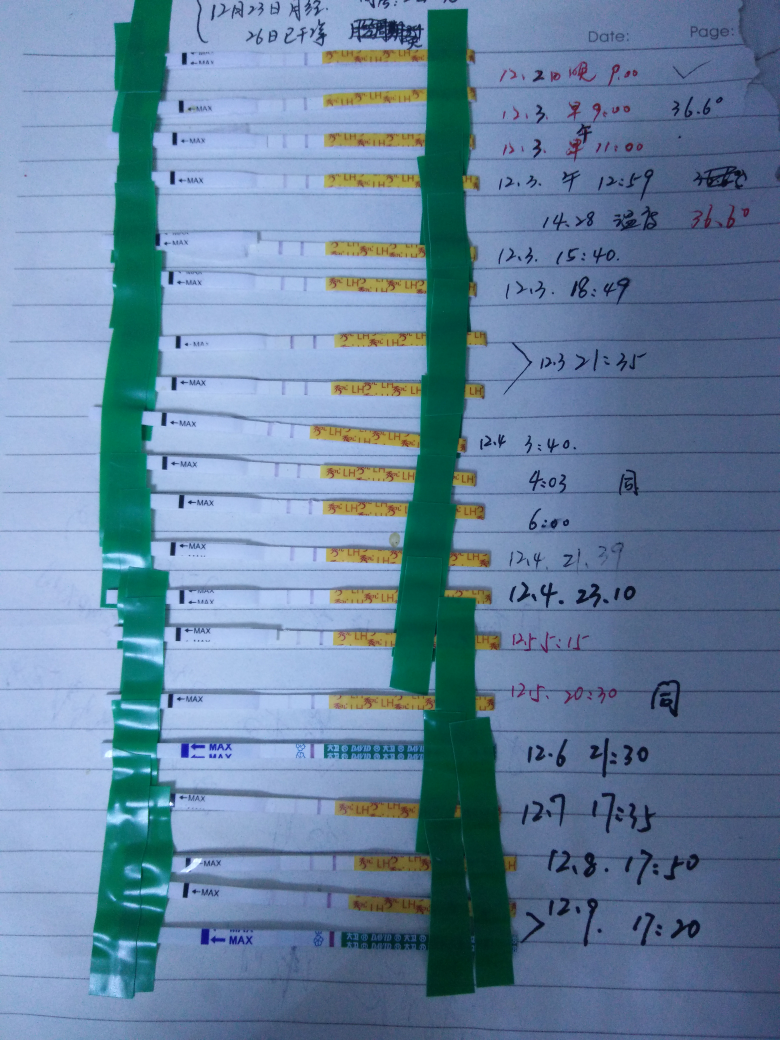 12月23日 月经
26日已干净
Date: Page:
←MAX
12.2日晚 9.00
←MAX LH
12.3. 早9:00 36.6°
←MAX LH
12.3. 午 11:00
←MAX LH
12.3. 午 12:59
14.28 温度 36.6°
←MAX LH
12.3. 15:40.
←MAX LH
12.3. 18:49
←MAX LH
12.3 21:35
←MAX LH
←MAX LH
12.4 3:40.
←MAX LH
4:03 同
←MAX LH
6:00
←MAX LH
12.4. 21.39
←MAX LH
12.4. 23.10
←MAX LH
12.5 5:15
←MAX LH
12.5. 20:30 同
← MAX
12.6 21:30
←MAX LH
12.7 17:35
←MAX LH
12.8. 17:50
←MAX LH
12.9. 17:20
← MAX